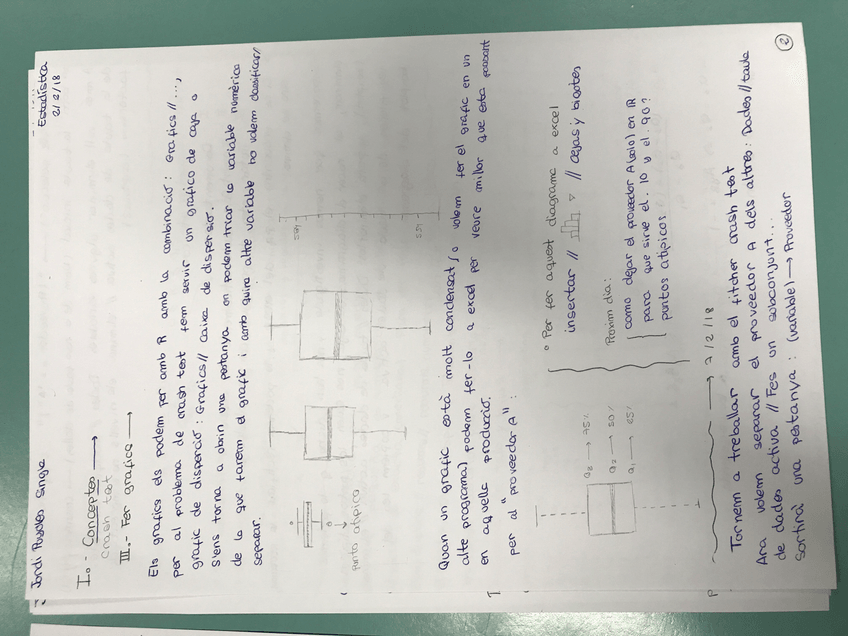 Jordi Estadística
2/2/18
I.- Conceptes →
crash test
III.- Fer grafico →
Els grafics els podem per amb R amb la combinació: Grafics//...,
per al problema de crash test fem servir un grafico de caja o
grafic de dispersió: Grafics// Caixa de dispersió.
S'ens torna a obrir una pestanya on podem triar la variable numérica
de la que farem el grafic i amb quina altre variable ho volem classificar/
separar.
punto atipico
Quan un grafic està molt condensat/o volem fer el grafic en un
altre programa) podem fer-lo a excel per veure millor que esta passant
en aquella producció.
per al "proveedor A":
Q3 → 75%
Q2 → 50%
Q1 → 25%
• Per fer aquest diagrama a excel
insertar // ▽ // cajas y bigotes
Proxim dia:
como dejar el proveedor A (solo) en R
para que sirve el .10 y el .90?
puntos atipicos
→ 7/2/18
Tornem a treballar amb el fitcher crash test
Ara volem separar el proveedor A dels altres: Dades//taula
de dades activa // Fes un subconjunt...
Sortirà una pestanya: (variable) → Proveedor
2